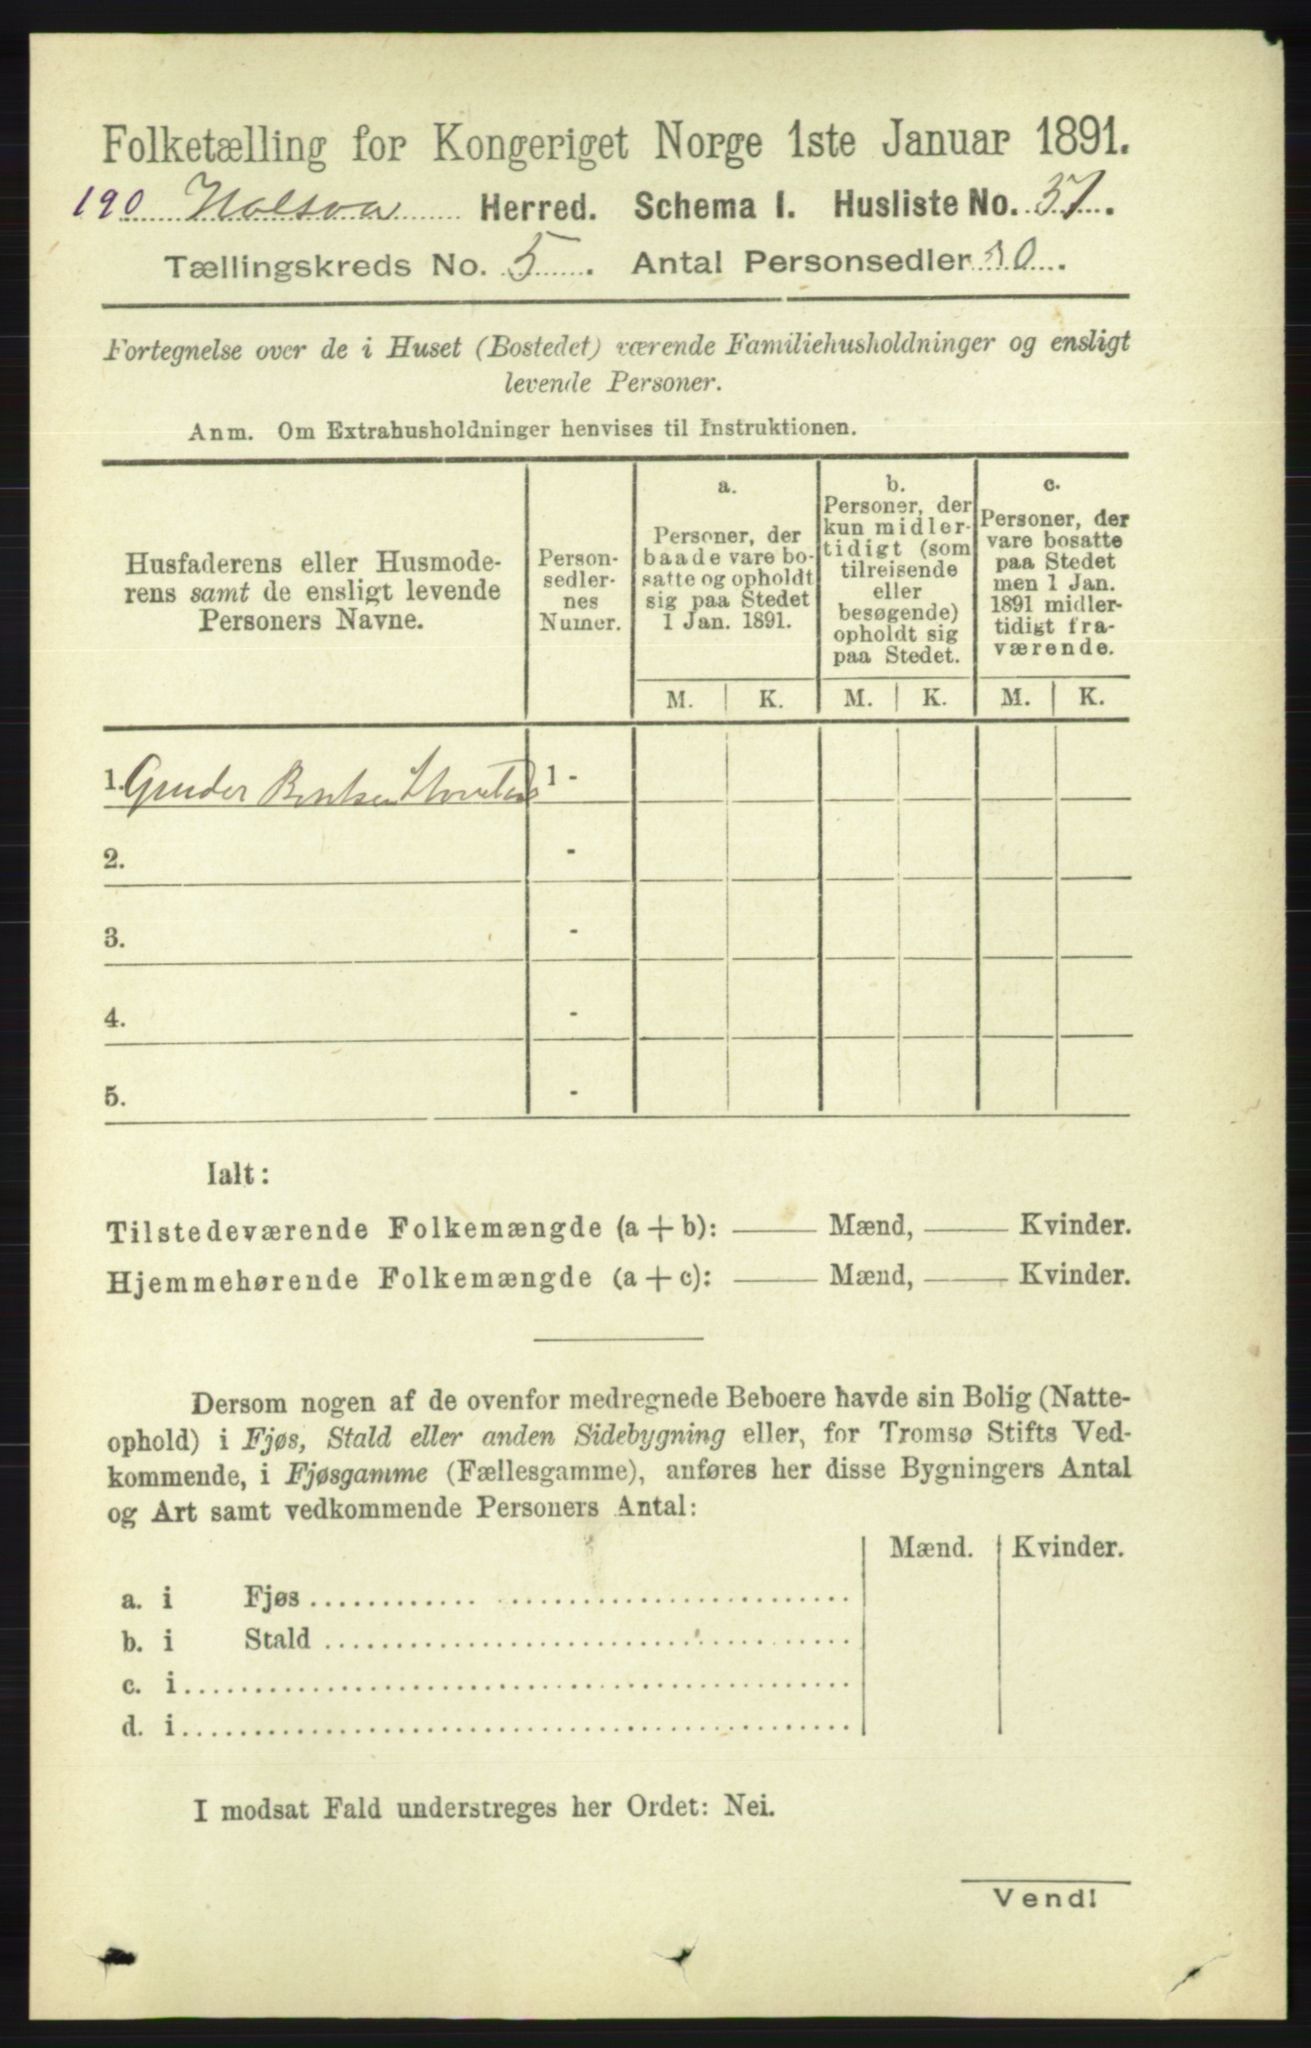 Folketælling for Kongeriget Norge 1ste Januar 1891.
190 Herred. Schema I. Husliste No. 37.
Tællingskreds No. 5. Antal Personsedler 10.
Fortegnelse over de i Huset (Bostedet) værende Familiehusholdninger og ensligt
levende Personer.
Anm. Om Extrahusholdninger henvises til Instruktionen.
Husfaderens eller Husmode-
rens samt de ensligt levende
Personers Navne.
Person-
sedler-
nes
Numer.
a.
Personer, der
baade vare bo-
satte og opholdt
sig paa Stedet
1 Jan. 1891.
b.
Personer, der
kun midler-
tidigt (som
tilreisende
eller
besøgende)
opholdt sig
paa Stedet.
c.
Personer, der
vare bosatte
paa Stedet
men 1 Jan.
1891 midler-
tidigt fra-
værende.
M. K. M. K. M. K.
1. 1 -
2. -
3. -
4. -
5. -
Ialt:
Tilstedeværende Folkemængde (a + b): —— Mænd, —— Kvinder.
Hjemmehørende Folkemængde (a + c): —— Mænd, —— Kvinder.
Dersom nogen af de ovenfor medregnede Beboere havde sin Bolig (Natte-
ophold) i Fjøs, Stald eller anden Sidebygning eller, for Tromsø Stifts Ved-
kommende, i Fjøsgamme (Fællesgamme), anføres her disse Bygningers Antal
og Art samt vedkommende Personers Antal:
Mænd. Kvinder.
a. i Fjøs
b. i Stald
c. i
d. i
I modsat Fald understreges her Ordet: Nei.
Vend!